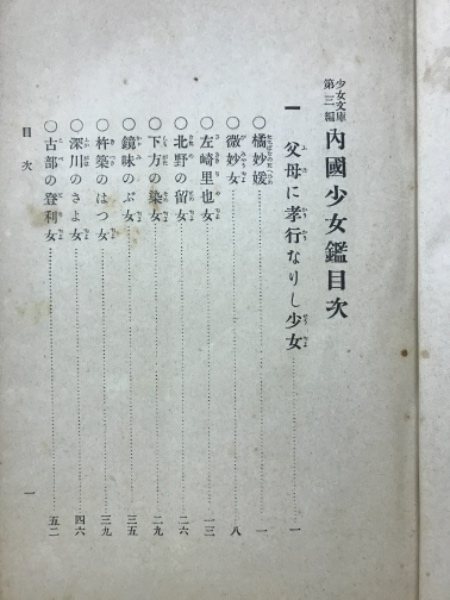 少女文庫
第三編
內國少女鑑目次
一 父母に孝行なりし少女 一
○橘妙媛 一
○微妙女 八
○左崎里也女 一三
○北野の留女 二六
○下方の染女 二九
○鏡味のぶ女 三五
○杵築のはつ女 三九
○深川のさよ女 四六
○古部の登利女 五二
目次
一